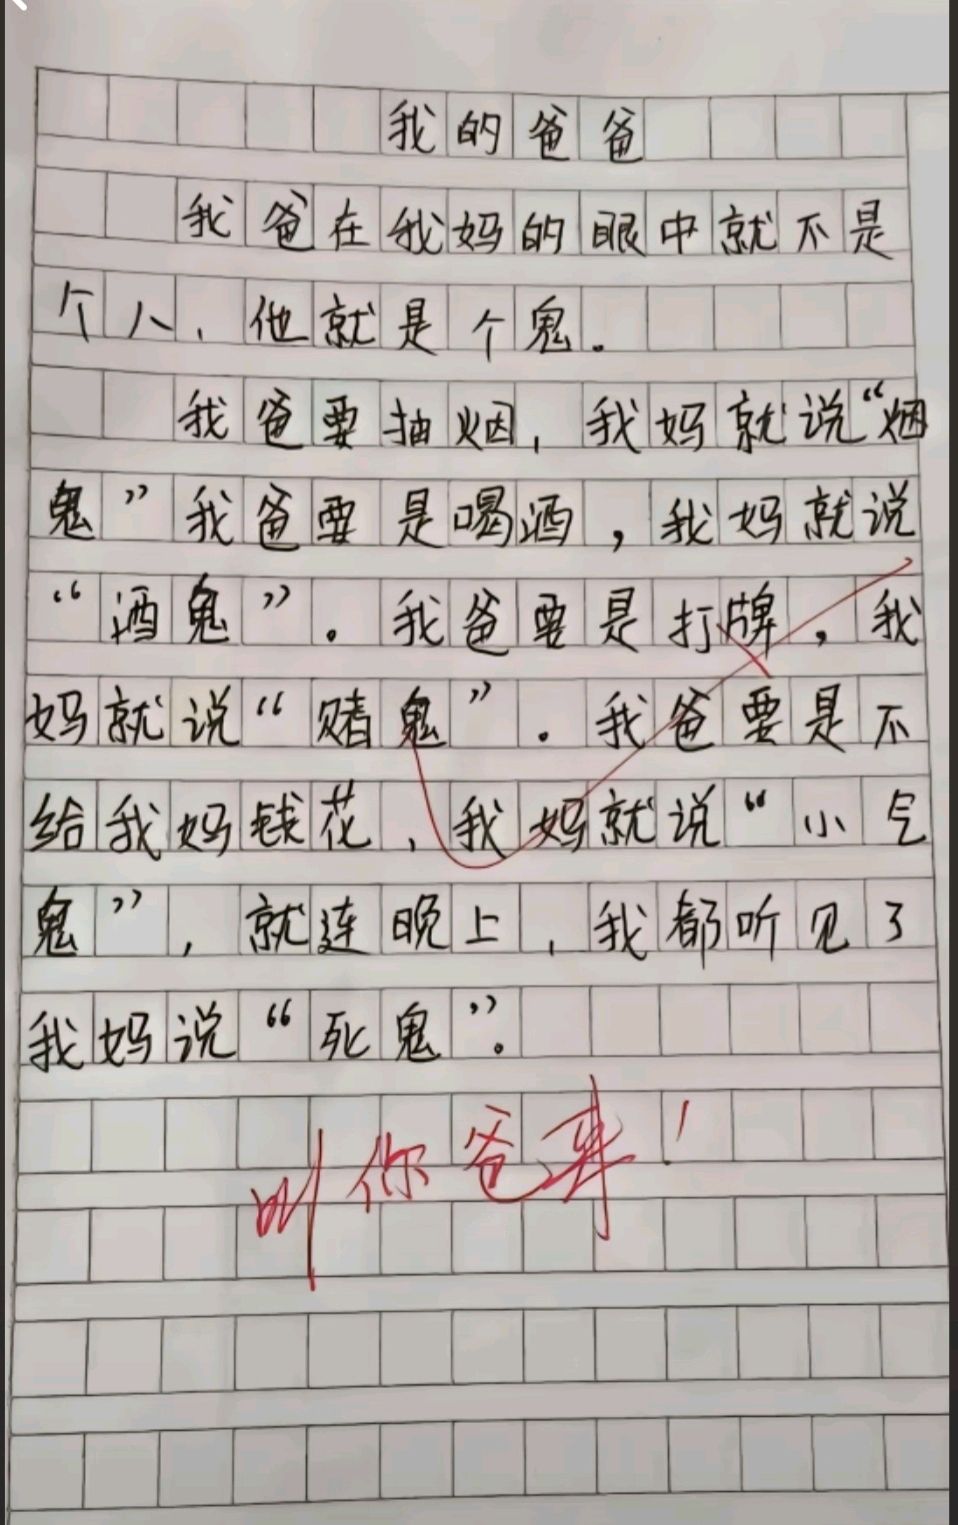 我的爸爸
我爸在我妈的眼中就不是
个人，他就是个鬼。
我爸要抽烟，我妈就说“烟
鬼”我爸要是喝酒，我妈就说
“酒鬼”。我爸要是打牌，我
妈就说“赌鬼”。我爸要是不
给我妈钱花，我妈就说“小气
鬼”，就连晚上，我都听见了
我妈说“死鬼”。
叫你爸来！